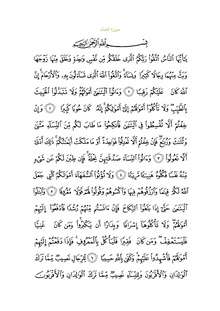 سورة النساء
بسم الله الرحمن الرحيم
يأيها الناس اتقوا ربكم الذى خلقكم من نفس وحدة وخلق منها زوجها
وبث منهما رجالا كثيرا ونساء واتقوا الله الذى تساءلون به والأرحام إن
الله كان عليكم رقيبا ١ وءاتوا اليتمى أمولهم ولا تتبدلوا الخبيث
بالطيب ولا تأكلوا أمولهم إلى أمولكم إنه كان حوبا كبيرا ٢ وإن
خفتم ألا تقسطوا فى اليتمى فانكحوا ما طاب لكم من النساء مثنى
وثلث وربع فإن خفتم ألا تعدلوا فوحدة أو ما ملكت أيمنكم ذلك أدنى
ألا تعولوا ٣ وءاتوا النساء صدقتهن نحلة فإن طبن لكم عن شىء
منه نفسا فكلوه هنيئا مريئا ٤ ولا تؤتوا السفهاء أمولكم التى جعل
الله لكم قيما وارزقوهم فيها واكسوهم وقولوا لهم قولا معروفا ٥ وابتلوا
اليتمى حتى إذا بلغوا النكاح فإن ءانستم منهم رشدا فادفعوا إليهم
أمولهم ولا تأكلوها إسرافا وبدارا أن يكبروا ومن كان غنيا
فليستعفف ومن كان فقيرا فليأكل بالمعروف فإذا دفعتم إليهم
أمولهم فأشهدوا عليهم وكفى بالله حسيبا ٦ للرجال نصيب مما ترك
الولدان والأقربون وللنساء نصيب مما ترك الولدان والأقربون